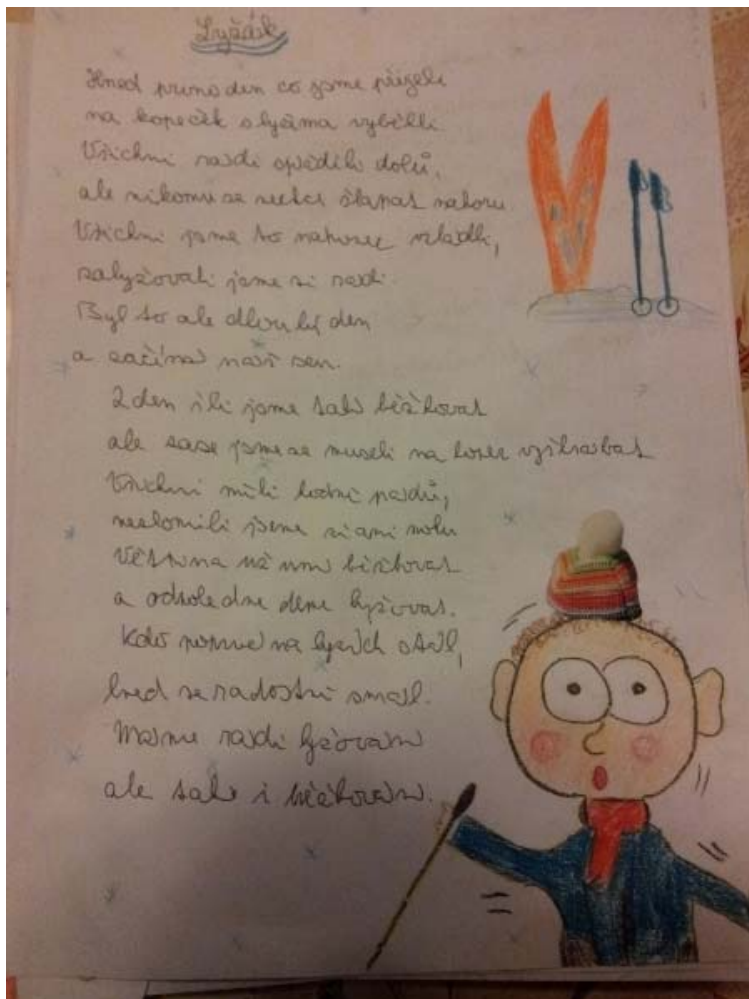 Lyžák
Hned první den co jsme přijeli
na kopeček s lyžema vyběhli.
Všichni rádi sjížděli dolů,
ale nikomu se nechce šlapat nahoru.
Všichni jsme to nakonec zvládli,
zalyžovali jsme si rádi.
Byl to ale dlouhý den
a začíná náš sen.
2 den šli jsme také běžkovat
ale zase jsme se museli na kopec vyškrabat
Všichni měli hodně pádů,
nezlomili jsme si ani nohu
Většina už umí běžkovat
a odpoledne deme lyžovat.
Kdo poprvé na lyžích stál,
hned se radostní smál.
Máme rádi lyžování
ale také i běžkování.